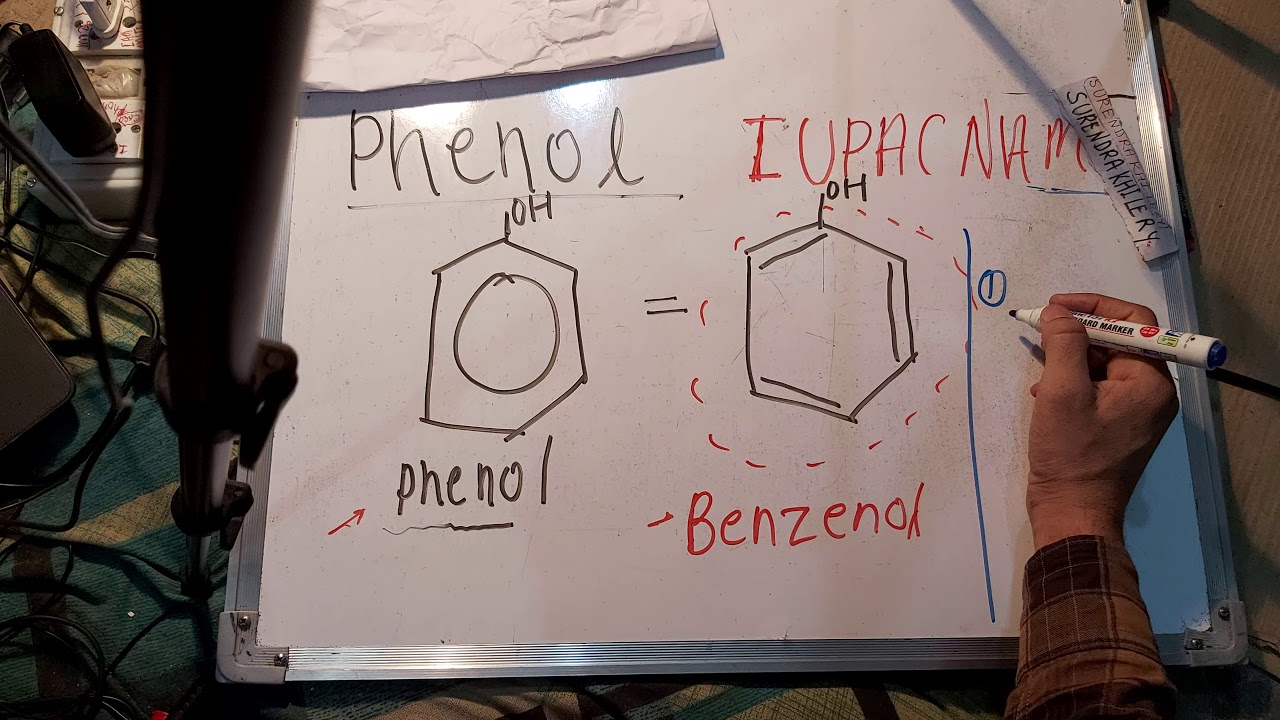 Phenol
IUPAC NAM
SURENDRA KHILERY
OH
OH
=
①
phenol
Benzenol
BOARD MARKER